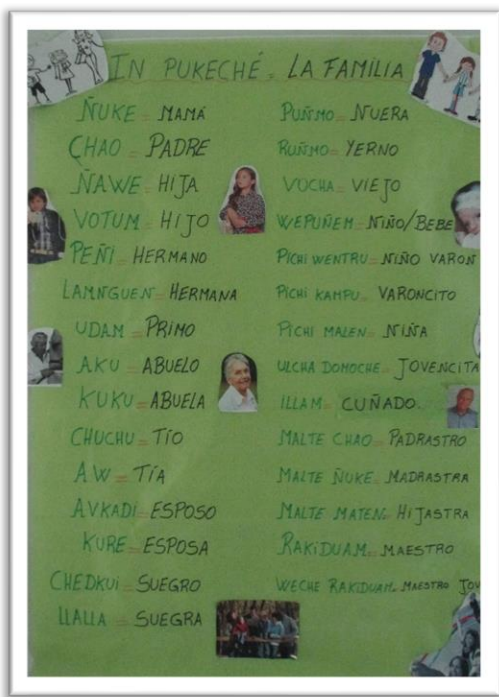 IN PUKECHÉ = LA FAMILIA
ÑUKE = MAMÁ
CHAO = PADRE
ÑAWE = HIJA
VOTUM = HIJO
PEÑI = HERMANO
LAMNGUEN = HERMANA
UDAM = PRIMO
AKU = ABUELO
KUKU = ABUELA
CHUCHU = TÍO
AW = TÍA
AVKADI = ESPOSO
KURE = ESPOSA
CHEDKUI = SUEGRO
LLALLA = SUEGRA
PUÑMO = NUERA
RUÑMO = YERNO
VUCHA = VIEJO
WEPUÑEM = NIÑO/BEBE
PICHI WENTRU = NIÑO VARON
PICHI KAMPU = VARONCITO
PICHI MALEN = NIÑA
ULCHA DOMOCHE = JOVENCITA
ILLAM = CUÑADO
MALTE CHAO = PADRASTRO
MALTE ÑUKE = MADRASTRA
MALTE MATEN = HIJASTRA
RAKIDUAM = MAESTRO
WECHE RAKIDUAM = MAESTRO JOV